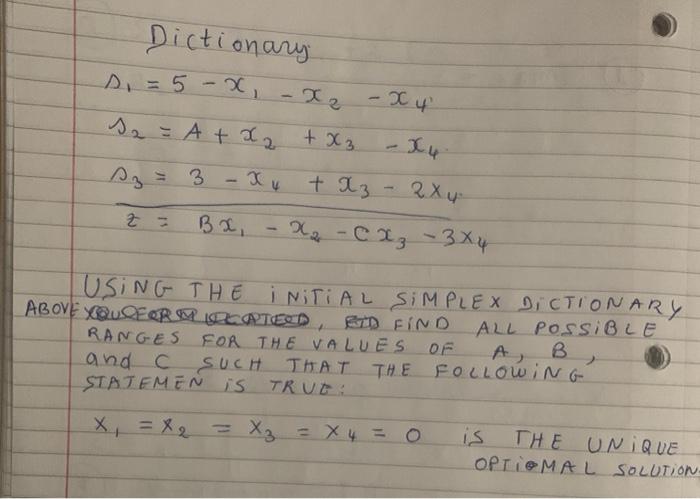 Dictionary
s₁ = 5 - x₁ - x₂ - x₄
s₂ = A + x₂ + x₃ - x₄
s₃ = 3 - x₄ + x₃ - 2x₄
z = Bx₁ - x₂ - Cx₃ - 3x₄
USING THE INITIAL SIMPLEX DICTIONARY
ABOVE, FIND ALL POSSIBLE
RANGES FOR THE VALUES OF A, B,
and C SUCH THAT THE FOLLOWING
STATEMEN IS TRUE:
x₁ = x₂ = x₃ = x₄ = 0 IS THE UNIQUE
OPTIOMAL SOLUTION